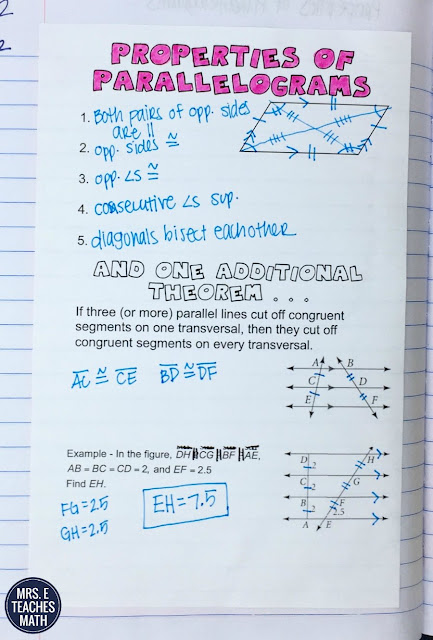 2
2
PROPERTIES OF
PARALLELOGRAMS
1. Both pairs of opp. sides
are ||
2. opp. sides ≅
3. opp. ∠s ≅
4. consecutive ∠s sup.
5. diagonals bisect eachother
AND ONE ADDITIONAL
THEOREM . . .
If three (or more) parallel lines cut off congruent
segments on one transversal, then they cut off
congruent segments on every transversal.
AC ≅ CE BD ≅ DF
A B
C D
E F
Example - In the figure, DH || CG || BF || AE,
AB = BC = CD = 2, and EF = 2.5
Find EH.
FG = 2.5
GH = 2.5
EH = 7.5
D H
2
C G
2
B F
2 2.5
A E
MRS. E
TEACHES
MATH